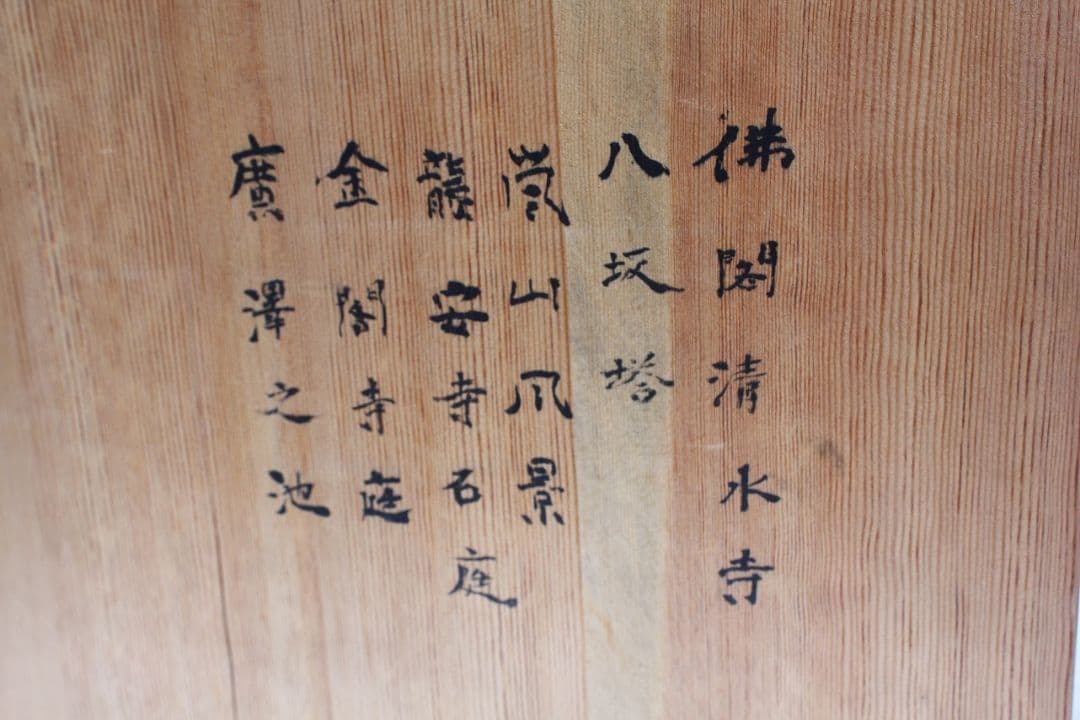 佛閣清水寺
八坂塔
嵐山風景
龍安寺石庭
金閣寺庭
廣澤之池